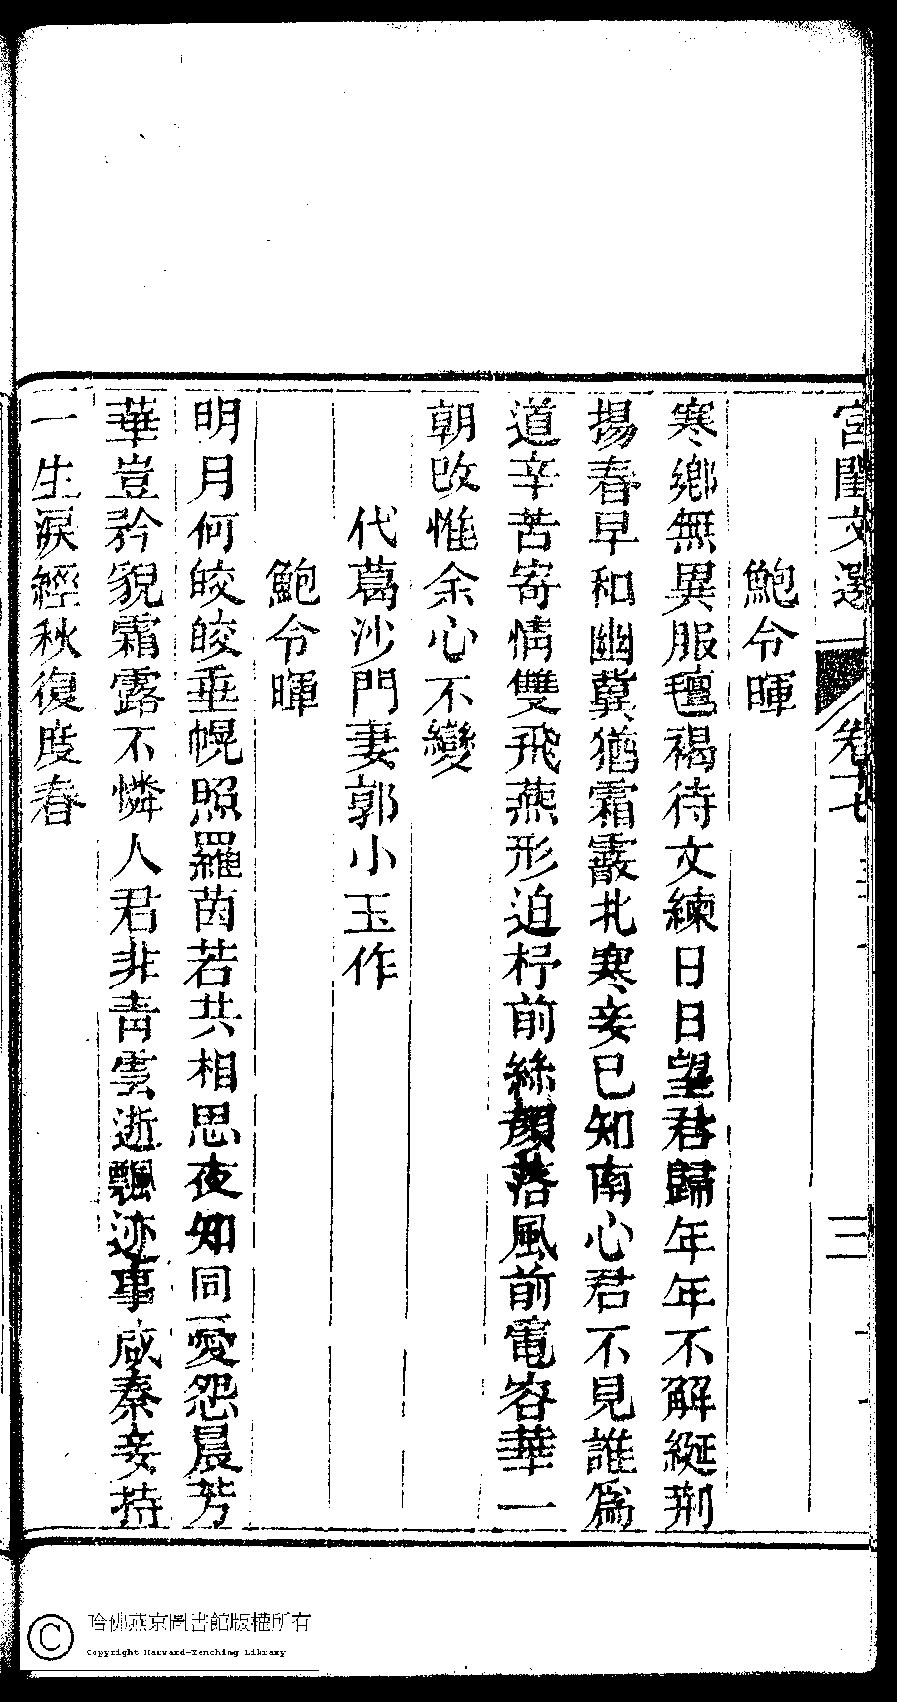 宮閨文選 卷十七 三
鮑令暉
寒鄉無異服氊褐待文練日日望君歸年年不解綖荆
揚春早和幽冀猶霜霰北寒妾已知南心君不見誰爲
道辛苦寄情雙飛燕形迫杼前絲顏落風前電容華一
朝改惟余心不變
代葛沙門妻郭小玉作
鮑令暉
明月何皎皎垂幌照羅茵若共相思夜知同一愛怨晨芳
華豈矜貌霜露不憐人君非青雲逝飄迹事咸秦妾持
一生淚經秋復度春
哈佛燕京圖書館版權所有
Copyright Harvard-Yenching Library